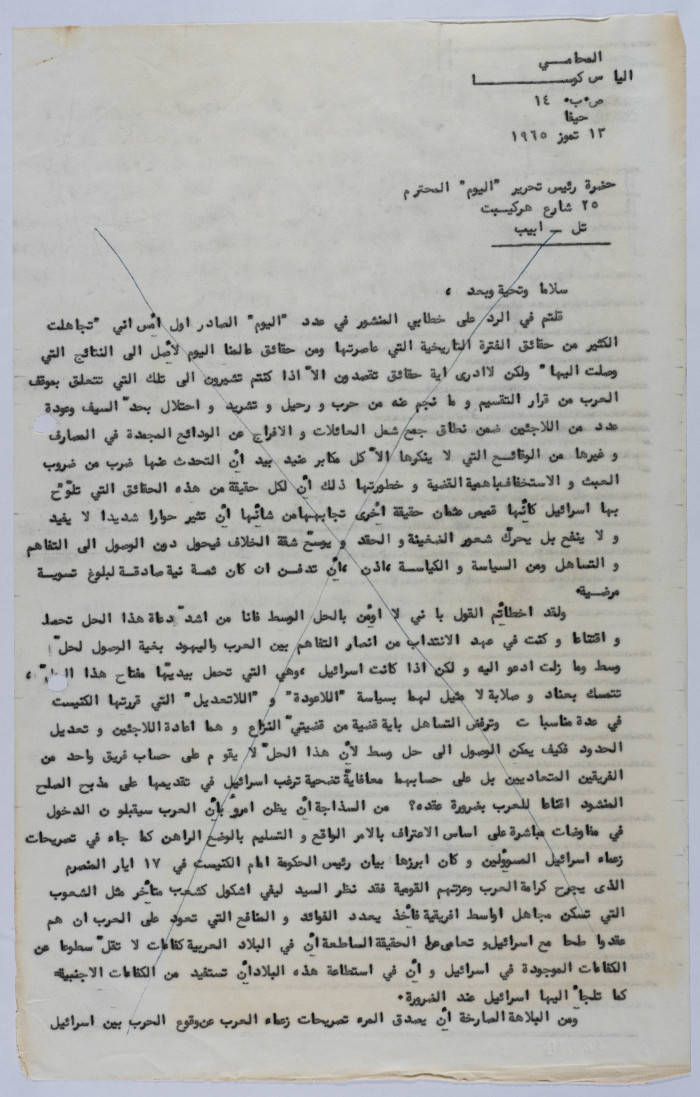 المحامــي
اليا س كوســـــــا
ص٠ب٠ ١٤
حيفا
١٣ تموز ١٩٦٥
حضرة رئيس تحرير "اليوم" المحترم
٢٥ شارع هركيبت
تل ــ ابيب
سلاما وتحية وبعد ،
قلتم في الرد على خطابي المنشور في عدد "اليوم" الصادر اول امٔس اني "تجاهلت
الكثير من حقائق الفترة التاريخية التي عاصرتها ومن حقائق عالمنا اليوم لأصِل الى النتائج التي
وصلت اليها" ولكن لاادرى اية حقائق تقصدون الاّ اذا كنتم تشيرون الى تلك التي تتعلق بموقف
العرب من قرار التقسيم و ما نجم عنه من حرب و رحيل و تشريد و احتلال بحدّ السيف وعودة
عدد من اللاجئين ضمن نطاق جمع شمل العائلات و الافراج عن الودائع المجمدة في المصارف
و غيرها من الوقائع التي لا ينكرها الاّ كل مكابر عنيد بيد أنّ التحدث عنها ضرب من ضروب
العبث و الاستخفاف باهمية القضية و خطورتها ذلك أنّ لكل حقيقة من هذه الحقائق التي تلوّح
بها اسرائيل كأنّها قميص عثمان حقيقة أخرى تجابهها من شأنّها أنْ تثير حوارا شديدا لا يفيد
و لا ينفع بل يحرّك شعور الضغينة و الحقد و يوسّع شقة الخلاف فيحول دون الوصول الى التفاهم
و التساهل ومن السياسة و الكياسة ،اذن ،أنْ تدفن ان كان ثمة نية صادقة لبلوغ تسوية
مرضية٠
ولقد اخطأتم القول باني لا اؤمن بالحل الوسط فانا من اشدّ دعاة هذا الحل تحمسا
و اقتناعا و كنت في عهد الانتداب من انصار التفاهم بين العرب واليهود بغية الوصول لحلّ
وسط وما زلت ادعو اليه و لكن اذا كانت اسرائيل ،وهي التي تحمل بيديّها مفتاح هذا ،
تتمسك بعناد و صلابة لا مثيل لهما بسياسة "اللاعودة" و "اللاتعديل" التي قررتها الكنيست
في عدة مناسبا ت وترفض التساهل باية قضية من قضيتيّ النزاع و هما اعادة اللاجئين و تعديل
الحدود فكيف يمكن الوصول الى حل وسط لأن هذا الحلّ لا يقو م على حساب فريق واحد من
الفريقين المتعاديين بل على حسابهما معا فايةّ تضحية ترغب اسرائيل في تقديمها على مذبح الصلح
المنشود اقناعا للعرب بضرورة عقده؟ من السذاجة أنْ يظن امروٌ بأنّ العرب سيقبلو ن الدخول
في مفاوضات مباشرة على اساس الاعتراف بالامر الواقع و التسليم بالوضع الراهن كما جاء في تصريحات
زعماء اسرائيل المسوٌولين و كان ابرزها بيان رئيس الحكومة امام الكنيست في ١٧ ايار المنصرم
الذى يجرح كرامة العرب وعزتهم القومية فقد نظر السيد ليفي اشكول كشعب متأخر مثل الشعوب
التي تسكن مجاهل اواسط افريقية فأخذ يعدد الفوائد و المنافع التي تعود على العرب ان هم
عقدوا صلحا مع اسرائيل و تعامى عن الحقيقة الساطعة أنّ في البلاد العربية كفاءات لا تقلّ سطوعا عن
الكفاءات الموجودة في اسرائيل و أنّ في استطاعة هذه البلاد أنْ تستفيد من الكفاءات الاجنبية
كما تلجأ اليها اسرائيل عند الضرورة٠
ومن البلاهة الصارخة أنْ يصدق المرء تصريحات زعماء العرب عن وقوع الحرب بين اسرائيل